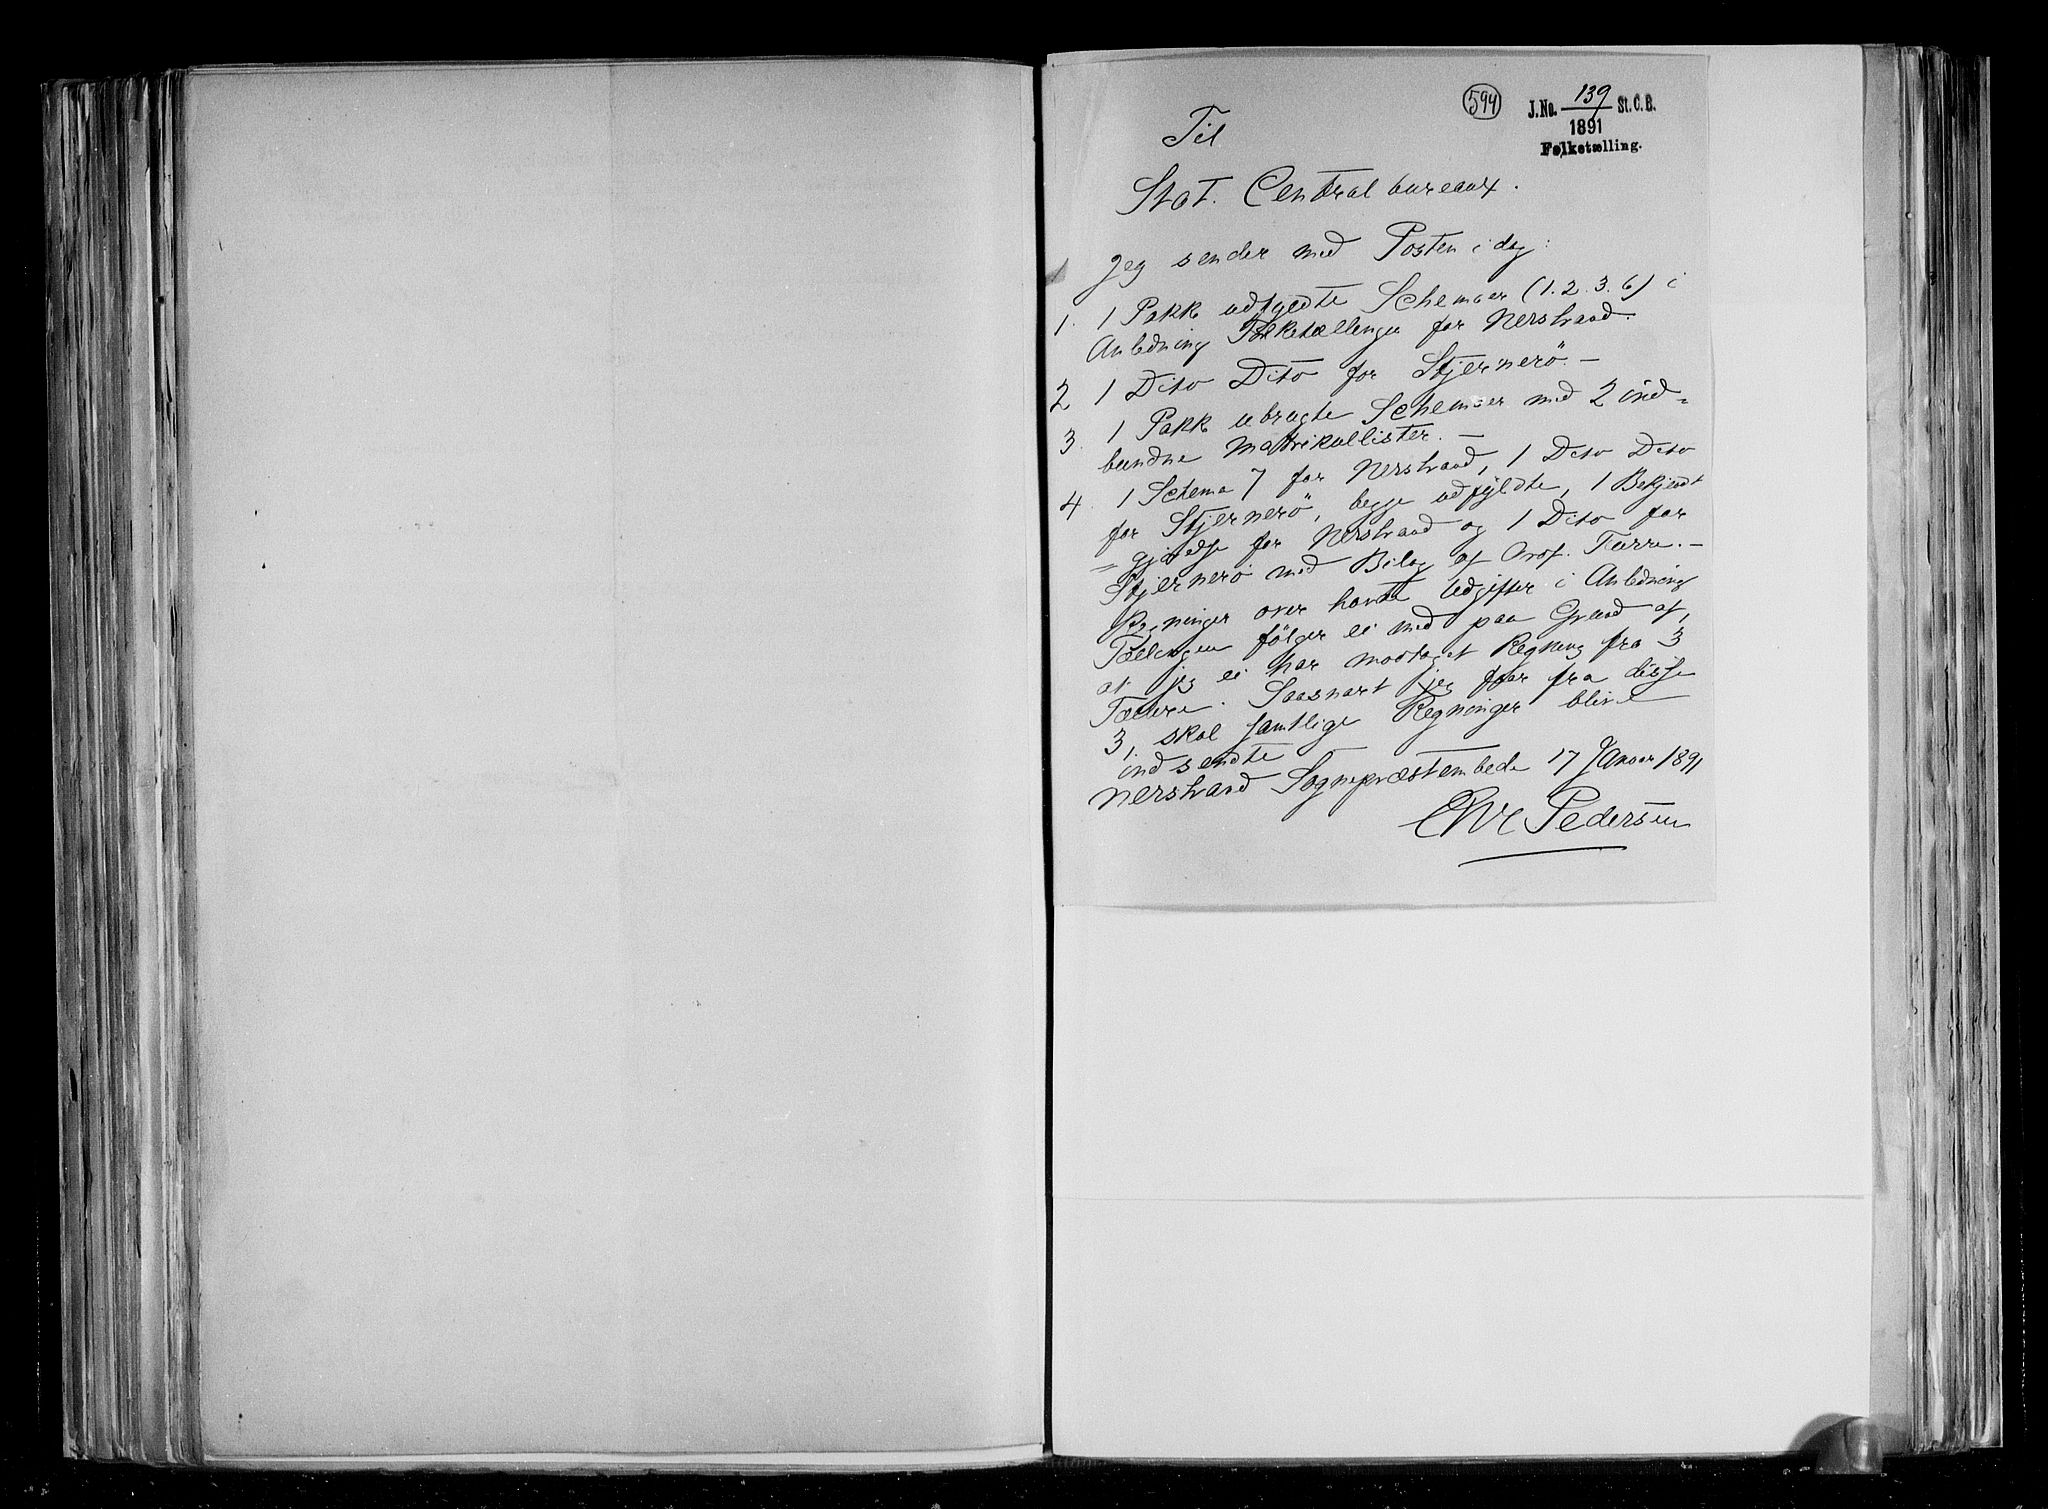 594
J.No. 139 St.C.B.
1891
Folketælling.
Til
Stat. Centralbureaux.
Jeg sender med Posten i dag:
1. 1 Pakk udfyldte Schemaer (1. 2. 3. 6) i
Anledning Folketællingen for Nerstrand.
2 1 Dito Dito for Stjernerö. —
3. 1 Pakk ubrugte Schemaer med 2 ind=
bundne Matrikullister. —
4. 1 Schema 7 for Nerstrand, 1 Dito Dito
for Stjernerö, begge udfyldte, 1 Bekjendt
= gjørelse for Nerstrand og 1 Dito for
Stjernerö med Bilag af Prof. —
Regninger over havte Udgifter i Anledning
Tællingen følger ei med paa Grund af,
at jeg ei har modtaget Regning fra 3
Tællere. Saasnart jeg faar fra disse
3, skal samtlige Regninger blive
indsendte
Nerstrand Sognepræstembede 17 Januar 1891
Pedersen